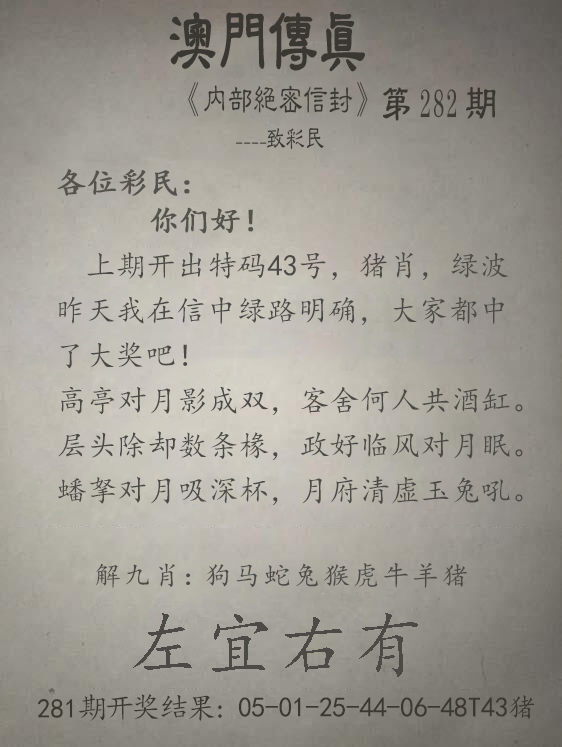 澳門傳眞
《内部絕密信封》第282期
----致彩民
各位彩民：
你们好！
上期开出特码43号，猪肖，绿波
昨天我在信中绿路明确，大家都中
了大奖吧！
高亭对月影成双，客舍何人共酒缸。
层头除却数条椽，政好临风对月眠。
蟠拏对月吸深杯，月府清虚玉兔吼。
解九肖：狗马蛇兔猴虎牛羊猪
左宜右有
281期开奖结果：05-01-25-44-06-48T43猪